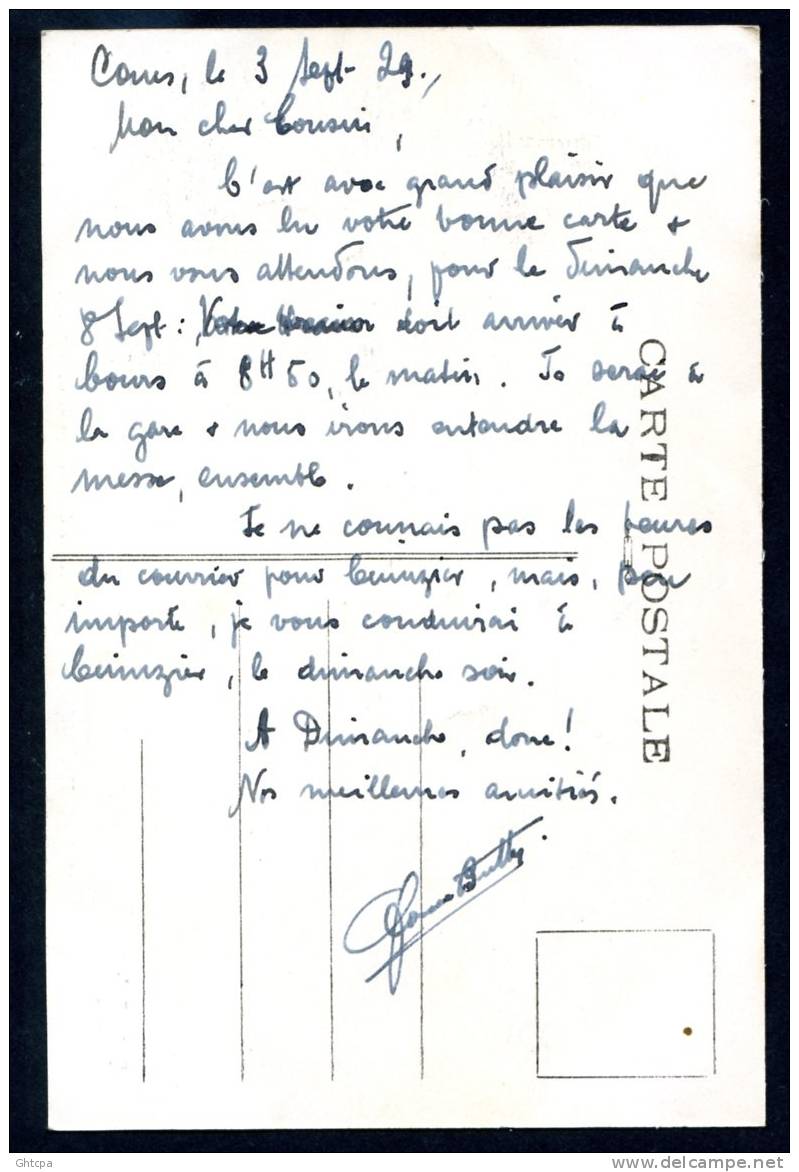 Cours, le 3 Sept 29.,
Mon cher Cousin,
C'est avec grand plaisir que
nous avons lu votre bonne carte &
nous vous attendons, pour le dimanche
8 Sept: Votre doit arriver à
Cours à 8H50, le matin. Je serai à
la gare & nous irons entendre la
messe, ensemble.
Je ne connais pas les heures
du courrier pour Cuinzier, mais, peu
importe, je vous conduirai à
Cuinzier, le dimanche soir.
A Dimanche, donc!
Nos meilleures amitiés.
CARTE POSTALE
Ghtcpa
delcampe.net